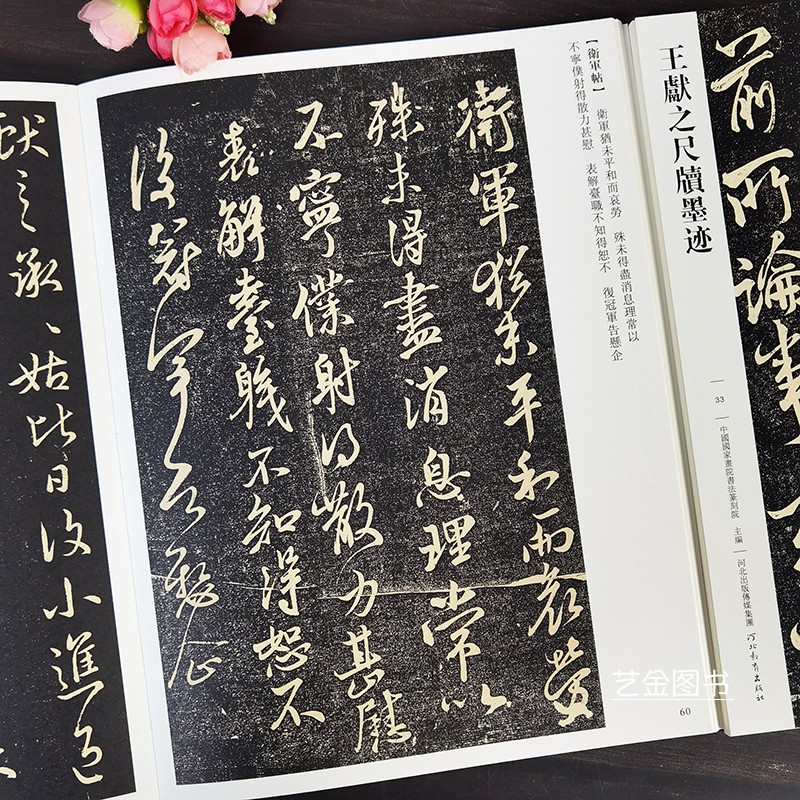 前所論事
王獻之尺牘墨迹
33
中國國家畫院書法篆刻院 主編
河北出版傳媒集團
河北教育出版社
【衛軍帖】 衛軍猶未平和而哀勞 殊未得盡消息理常以
不寧僕射得散力甚慰 表解臺職不知得恕不 復冠軍告懸企
衛軍猶未平和而哀勞
殊未得盡消息理常以
不寧僕射得散力甚慰
表解臺職不知得恕不
復冠軍告懸企
60
獻之承、姑比日復小進退
艺金图书